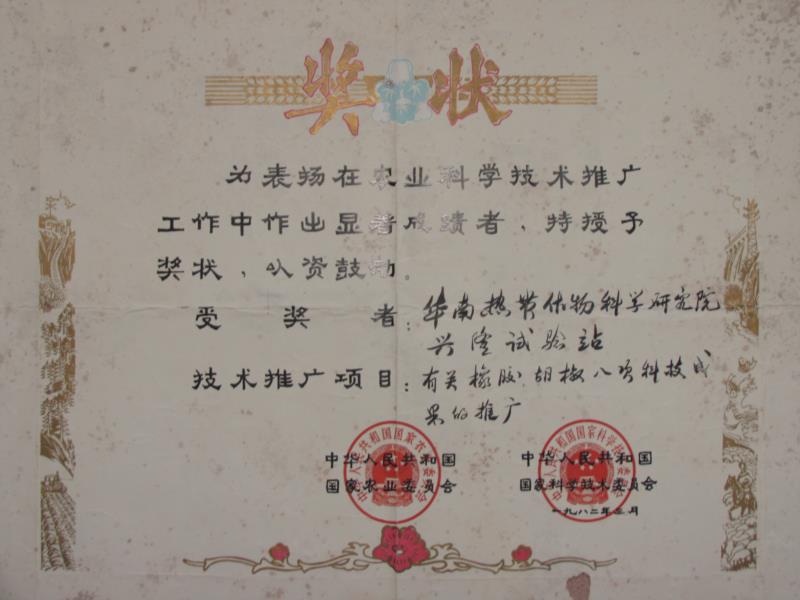 奖状
为表扬在农业科学技术推广
工作中作出显著成绩者，特授予
奖状，以资鼓励。
受奖者：华南热带作物科学研究院
兴隆试验站
技术推广项目：有关橡胶、胡椒八项科技成
果的推广
中华人民共和国
国家农业委员会
中华人民共和国
国家科学技术委员会
一九八二年 月